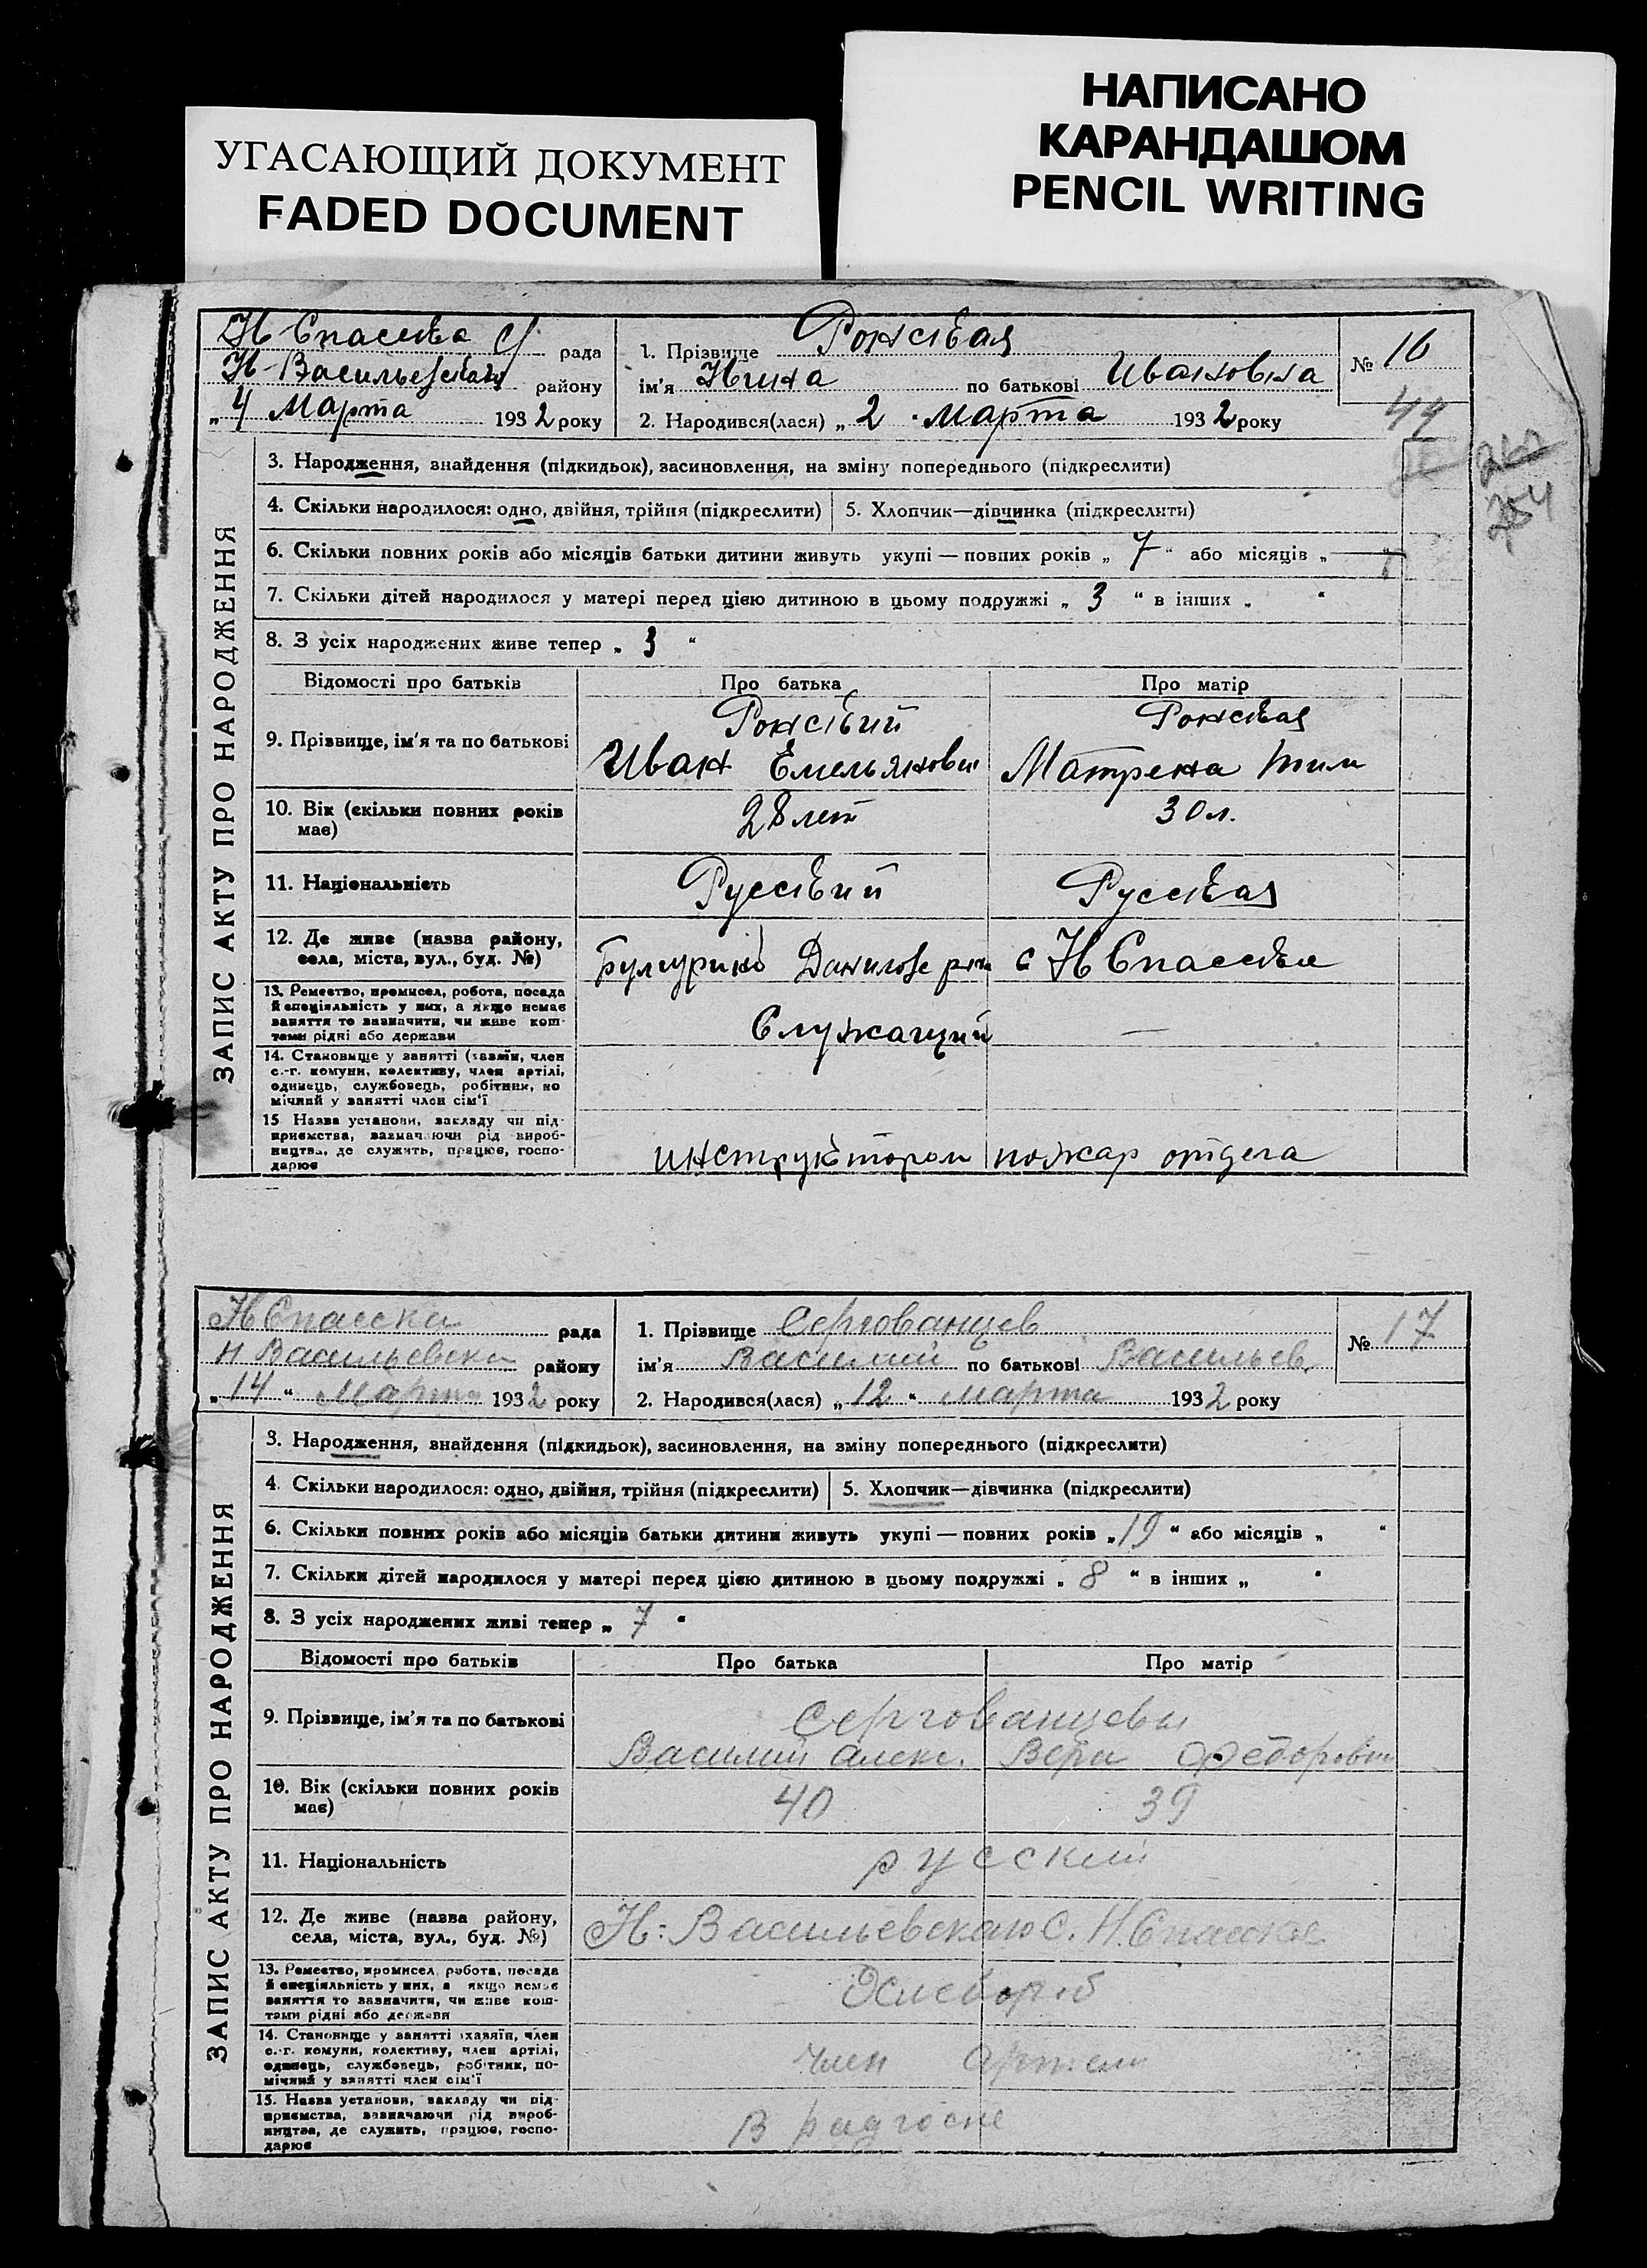 УГАСАЮЩИЙ ДОКУМЕНТ
FADED DOCUMENT
НАПИСАНО
КАРАНДАШОМ
PENCIL WRITING
ЗАПИС АКТУ ПРО НАРОДЖЕННЯ
рада
Н-Васильевского району
„4 Марта 1932 року
1. Прізвище
ім'я Нина по батькові Ивановна
2. Народився(лася) „2 “ Марта 1932 року
№ 16
44
254
3. Народження, знайдення (підкидьок), засиновлення, на зміну попереднього (підкреслити)
4. Скільки народилося: одно, двійня, трійня (підкреслити)
5. Хлопчик—дівчинка (підкреслити)
6. Скільки повних років або місяців батьки дитини живуть укупі — повних років „ 7 “ або місяців „ —
7. Скільки дітей народилося у матері перед цією дитиною в цьому подружжі „ 3 “ в інших „ “
8. З усіх народжених живе тепер „ 3 “
Відомості про батьків
Про батька
Про матір
9. Прізвище, ім'я та по батькові
Иван Емельянович
Матрена Тим
10. Вік (скільки повних років
має)
28 лет
30 л.
11. Національність
Русский
Русская
12. Де живе (назва району,
села, міста, вул., буд. №)
с Н Спасска
13. Ремество, промисел, робота, посада
й спеціяльність у них, а якщо немає
заняття то зазначити, чи живе кош-
тами рідні або держави
Служащий
—
14. Становище у занятті (хазяїн, член
с.-г. комуни, колективу, член артілі,
одинець, службовець, робітник, по
мічний у занятті член сім'ї
15 Назва установи, закладу чи під-
приємства, зазначаючи рід вироб-
ництва, де служить, працює, госпо-
дарює
инструктором пожар отдела
ЗАПИС АКТУ ПРО НАРОДЖЕННЯ
Н Спасска рада
н Васильевски району
„14 “ Марта 1932 року
1. Прізвище Сергованцев
ім'я Василий по батькові Васильев.
2. Народився(лася) „12 “ марта 1932 року
№ 17
3. Народження, знайдення (підкидьок), засиновлення, на зміну попереднього (підкреслити)
4. Скільки народилося: одно, двійня, трійня (підкреслити)
5. Хлопчик—дівчинка (підкреслити)
6. Скільки повних років або місяців батьки дитини живуть укупі — повних років „19 “ або місяців „ “
7. Скільки дітей народилося у матері перед цією дитиною в цьому подружжі „ 8 “ в інших „ “
8. З усіх народжених живі тепер „ 7 “
Відомості про батьків
Про батька
Про матір
9. Прізвище, ім'я та по батькові
Сергованцевы
Василий Алекс.
Вера Федоровн
10. Вік (скільки повних років
має)
40
39
11. Національність
русский
12. Де живе (назва району,
села, міста, вул., буд. №)
Н-Васильевскаго С. Н. Спасское
13. Ремество, промисел, робота, посада
й спеціяльність у них, а якщо немає
заняття то зазначити, чи живе кош-
тами рідні або держави
14. Становище у занятті (хазяїн, член
с.-г. комуни, колективу, член артілі,
одинець, службовець, робітник, по-
мічний у занятті член сім'ї
член Артели
15. Назва установи, закладу чи під-
приємства, зазначаючи рід вироб-
ництва, де служить, працює, госпо-
дарює
В радгоспе